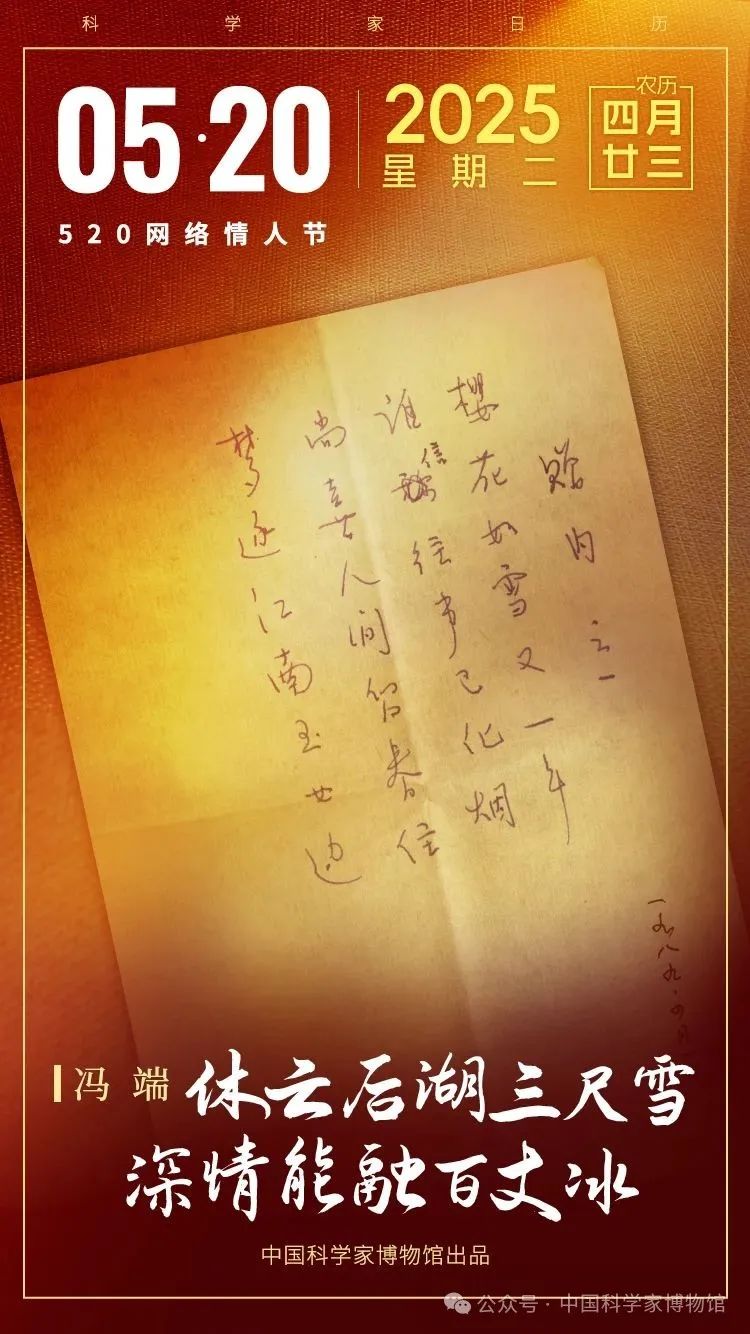 科学家日历
05·20
2025
星期二
农历
四月
廿三
520网络情人节
赠内之一
樱花如雪又一年
谁信往事已化烟
尚喜人间留春住
梦逐江南玉女边
一九八九.四月
冯端
休云后湖三尺雪
深情能融百丈冰
中国科学家博物馆出品
公众号·中国科学家博物馆